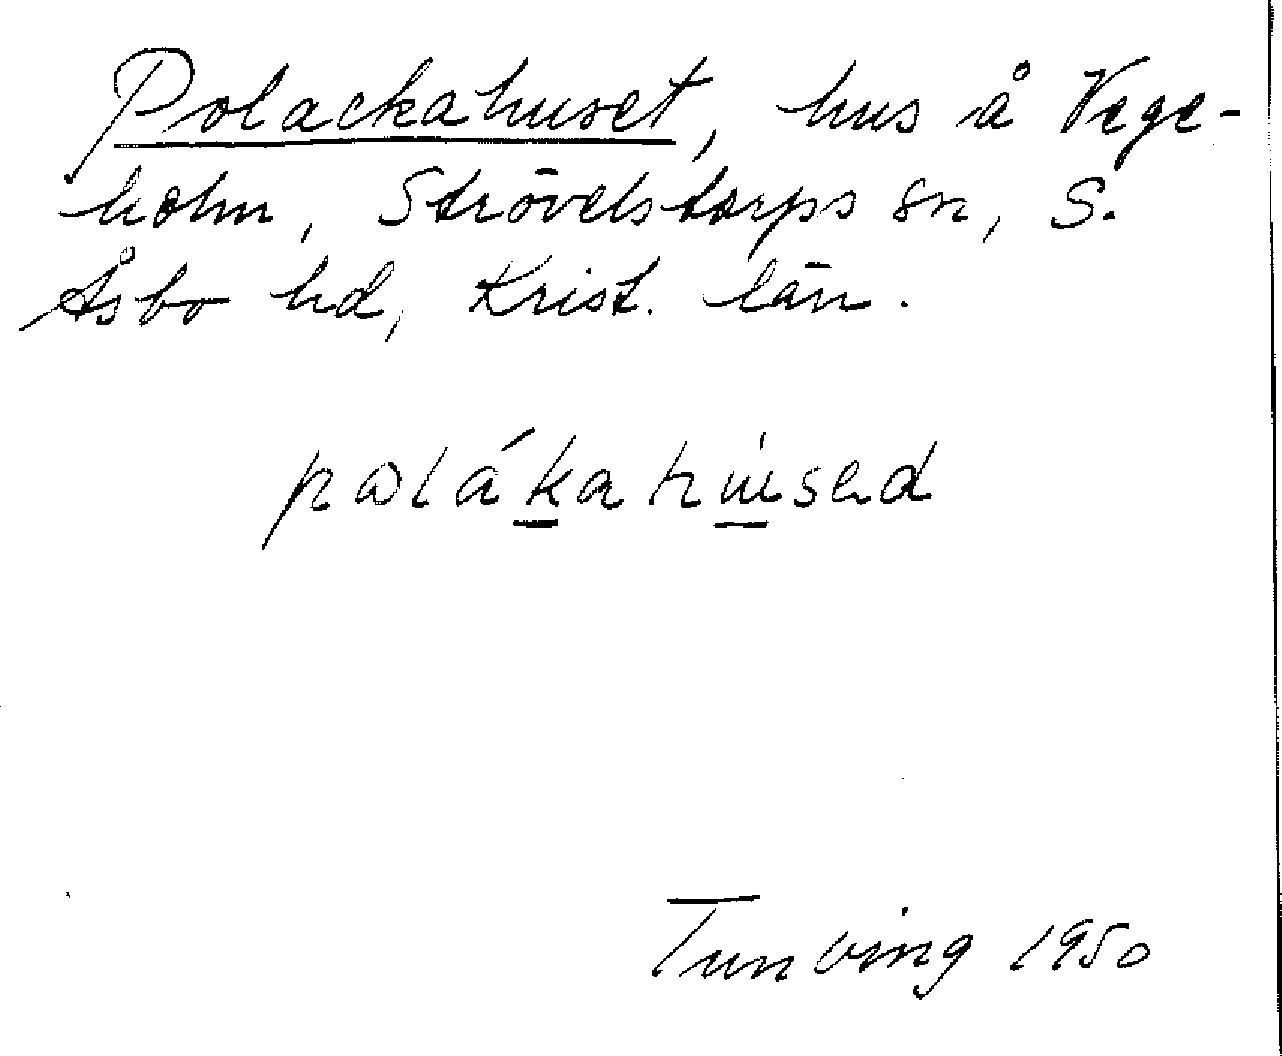 Polackahuset, hus å Vege-
holm, Strövelstorps sn, S.
Åsbo hd, Krist. län.
Tunving 1950